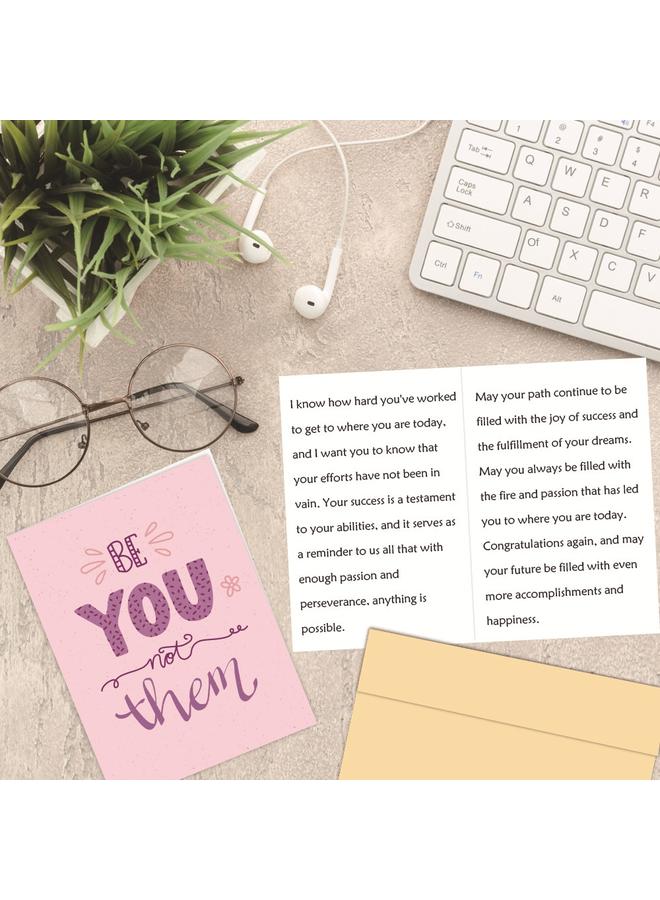 F4
1
@
2
#
3
$
4
Tab
Q
W
E
R
Caps
Lock
A
S
D
F
Shift
Of
X
C
V
Ctrl
Fn
Alt
I know how hard you've worked
to get to where you are today,
and I want you to know that
your efforts have not been in
vain. Your success is a testament
to your abilities, and it serves as
a reminder to us all that with
enough passion and
perseverance, anything is
possible.
May your path continue to be
filled with the joy of success and
the fulfillment of your dreams.
May you always be filled with
the fire and passion that has led
you to where you are today.
Congratulations again, and may
your future be filled with even
more accomplishments and
happiness.
BE
YOU
not
them